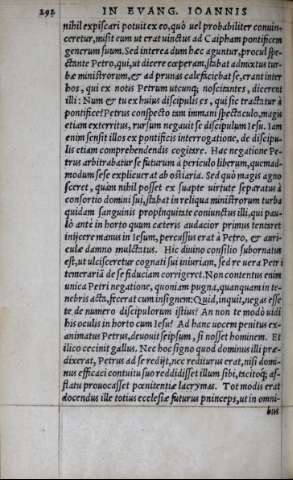 292 IN EVANG. IOANNIS
nihil expiscari potuit ex eo, quò uel probabiliter conuin-
ceretur, misit eum ut erat uinctus ad Caipham pontificem
generum suum. Sed interea dum hæc aguntur, procul spe-
ctante Petro, qui, ut dicere cœperam, stabat admixtus tur-
bæ ministrorum, & ad prunas calefaciebat se, erant inter
hos, qui ex notis Petrum utcunq; noscitantes, dicerent
illi: Num & tu ex huius discipulis es, qui sic tractatur à
pontifice? Petrus conspecto tam immani spectaculo, magis
etiam exterritus, rursum negauit se discipulum Iesu. Iam
enim sensit illos ex pontificis interrogatione, de discipu-
lis etiam comprehendendis cogitare. Hac negatione Pe-
trus arbitrabatur se futurum à periculo liberum, quemad-
modum sese explicuerat ab ostiaria. Sed quò magis agno
sceret, quàm nihil posset ex suapte uirtute separatus à
consortio domini sui, stabat in reliqua ministrorum turba
quidam sanguinis propinquitate coniunctus illi, qui pau-
lò ante in horto quum cæteris audacior primus tentaret
inijcere manus in Iesum, percussus erat à Petro, & auri-
culæ damno mulctatus. Hic diuino consilio subornatus
est, ut ulcisceretur cognati sui iniuriam, sed re uera Petri
temerariã de se fiduciam corrigeret. Non contentus enim
unica Petri negatione, quoniam pugna, quanquam in te-
nebris acta, fecerat eum insignem: Quid, inquit, negas esse
te de numero discipulorum istius? An non te modò uidi
his oculis in horto cum Iesu? Ad hanc uocem penitus ex-
animatus Petrus, deuouit seipsum, si nosset hominem. Et
ilico cecinit gallus. Nec hoc signo quod dominus illi præ-
dixerat, Petrus ad se redijt, nec rediturus erat, nisi domi-
nus efficaci contuitu suo reddidisset illum sibi, tacitoq; af-
flatu prouocasset pœnitentiæ lacrymas. Tot modis erat
docendus ille totius ecclesiæ futurus princeps, ut in omni-
bus